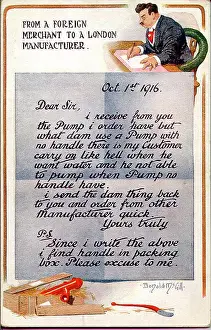 FROM A FOREIGN
MERCHANT TO A LONDON
MANUFACTURER.
Oct. 1st 1916.
Dear Sir,
i receive from you
the Pump i order have but
what dam use a Pump with
no handle there is my Customer
carry on like hell when he
want water and he not able
to pump when Pump no
handle have.
i send the dam thing back
to you and order from other
Manufacturer quick
Yours truly
P.S.
Since i write the above
i find handle in packing
box. Please excuse to me.
Donald McGill.